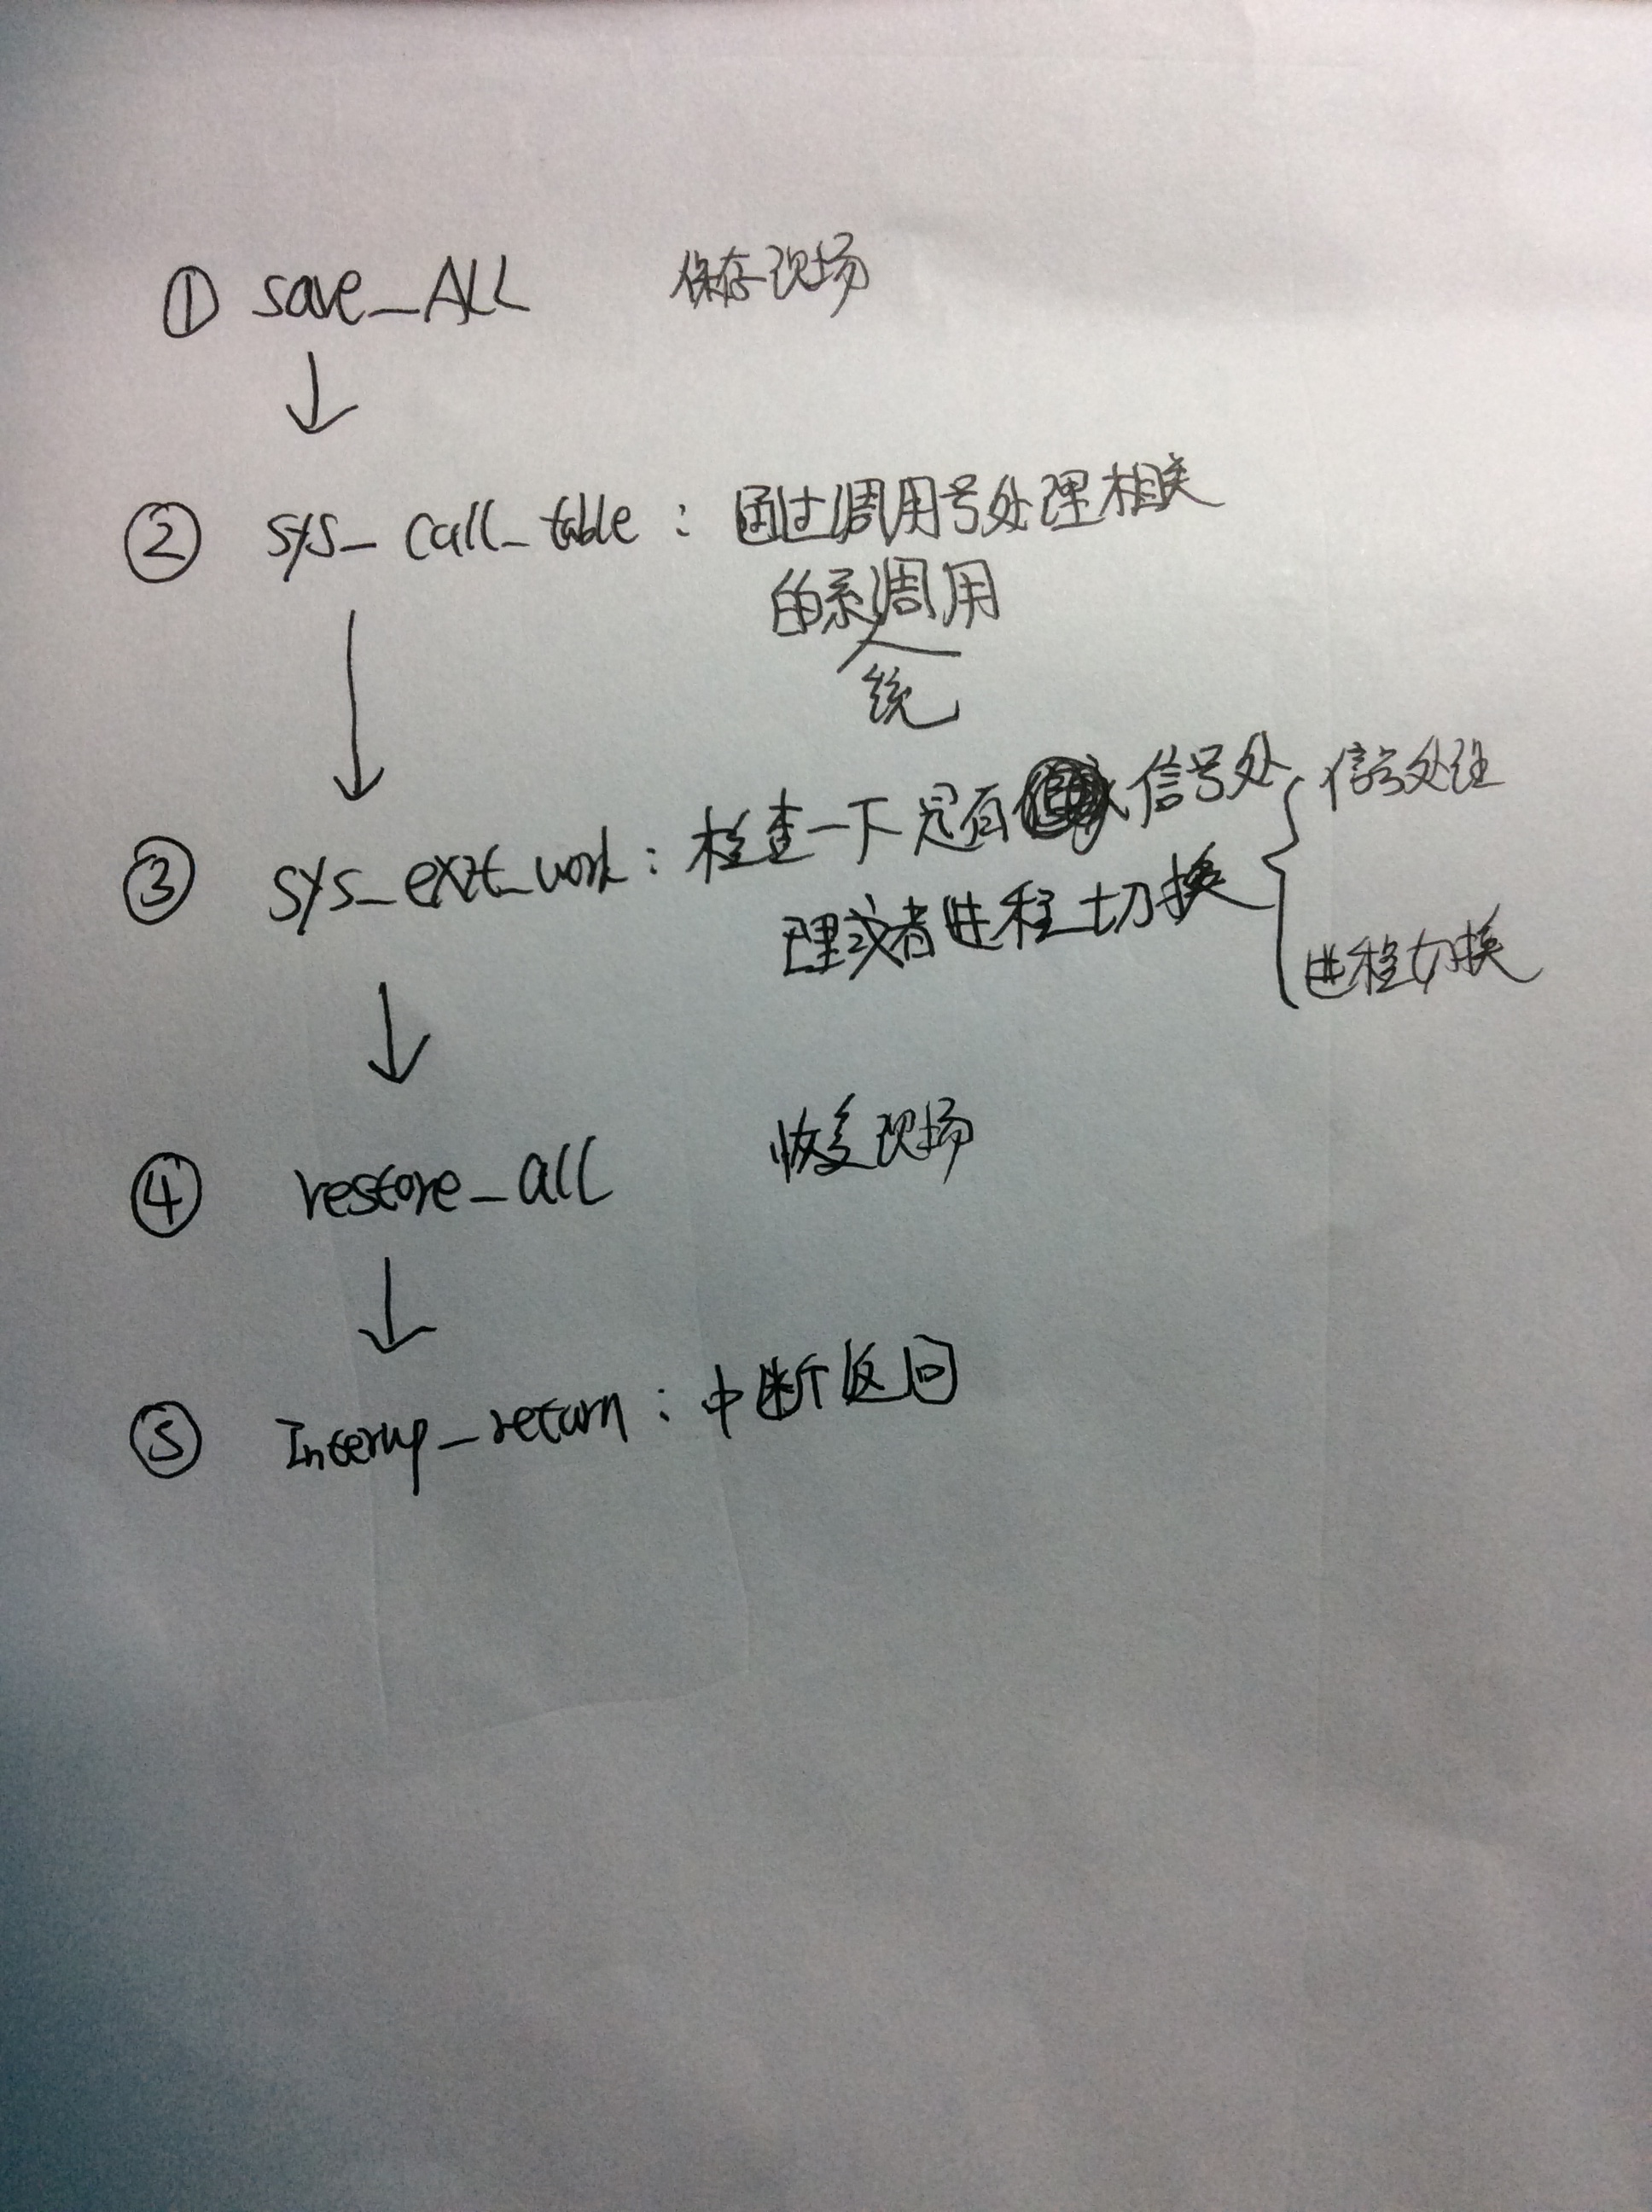 ① save_ALL 保存现场
② sys_call_table：通过调用号处理相关
的系统调用
③ sys_exit_work：检查一下是否有信号处
理或者进程切换
信号处理
进程切换
④ restore_all 恢复现场
⑤ Interup_return：中断返回